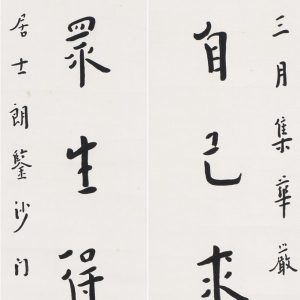 三月集華嚴
自己求
眾生得
居士朗鑒沙门